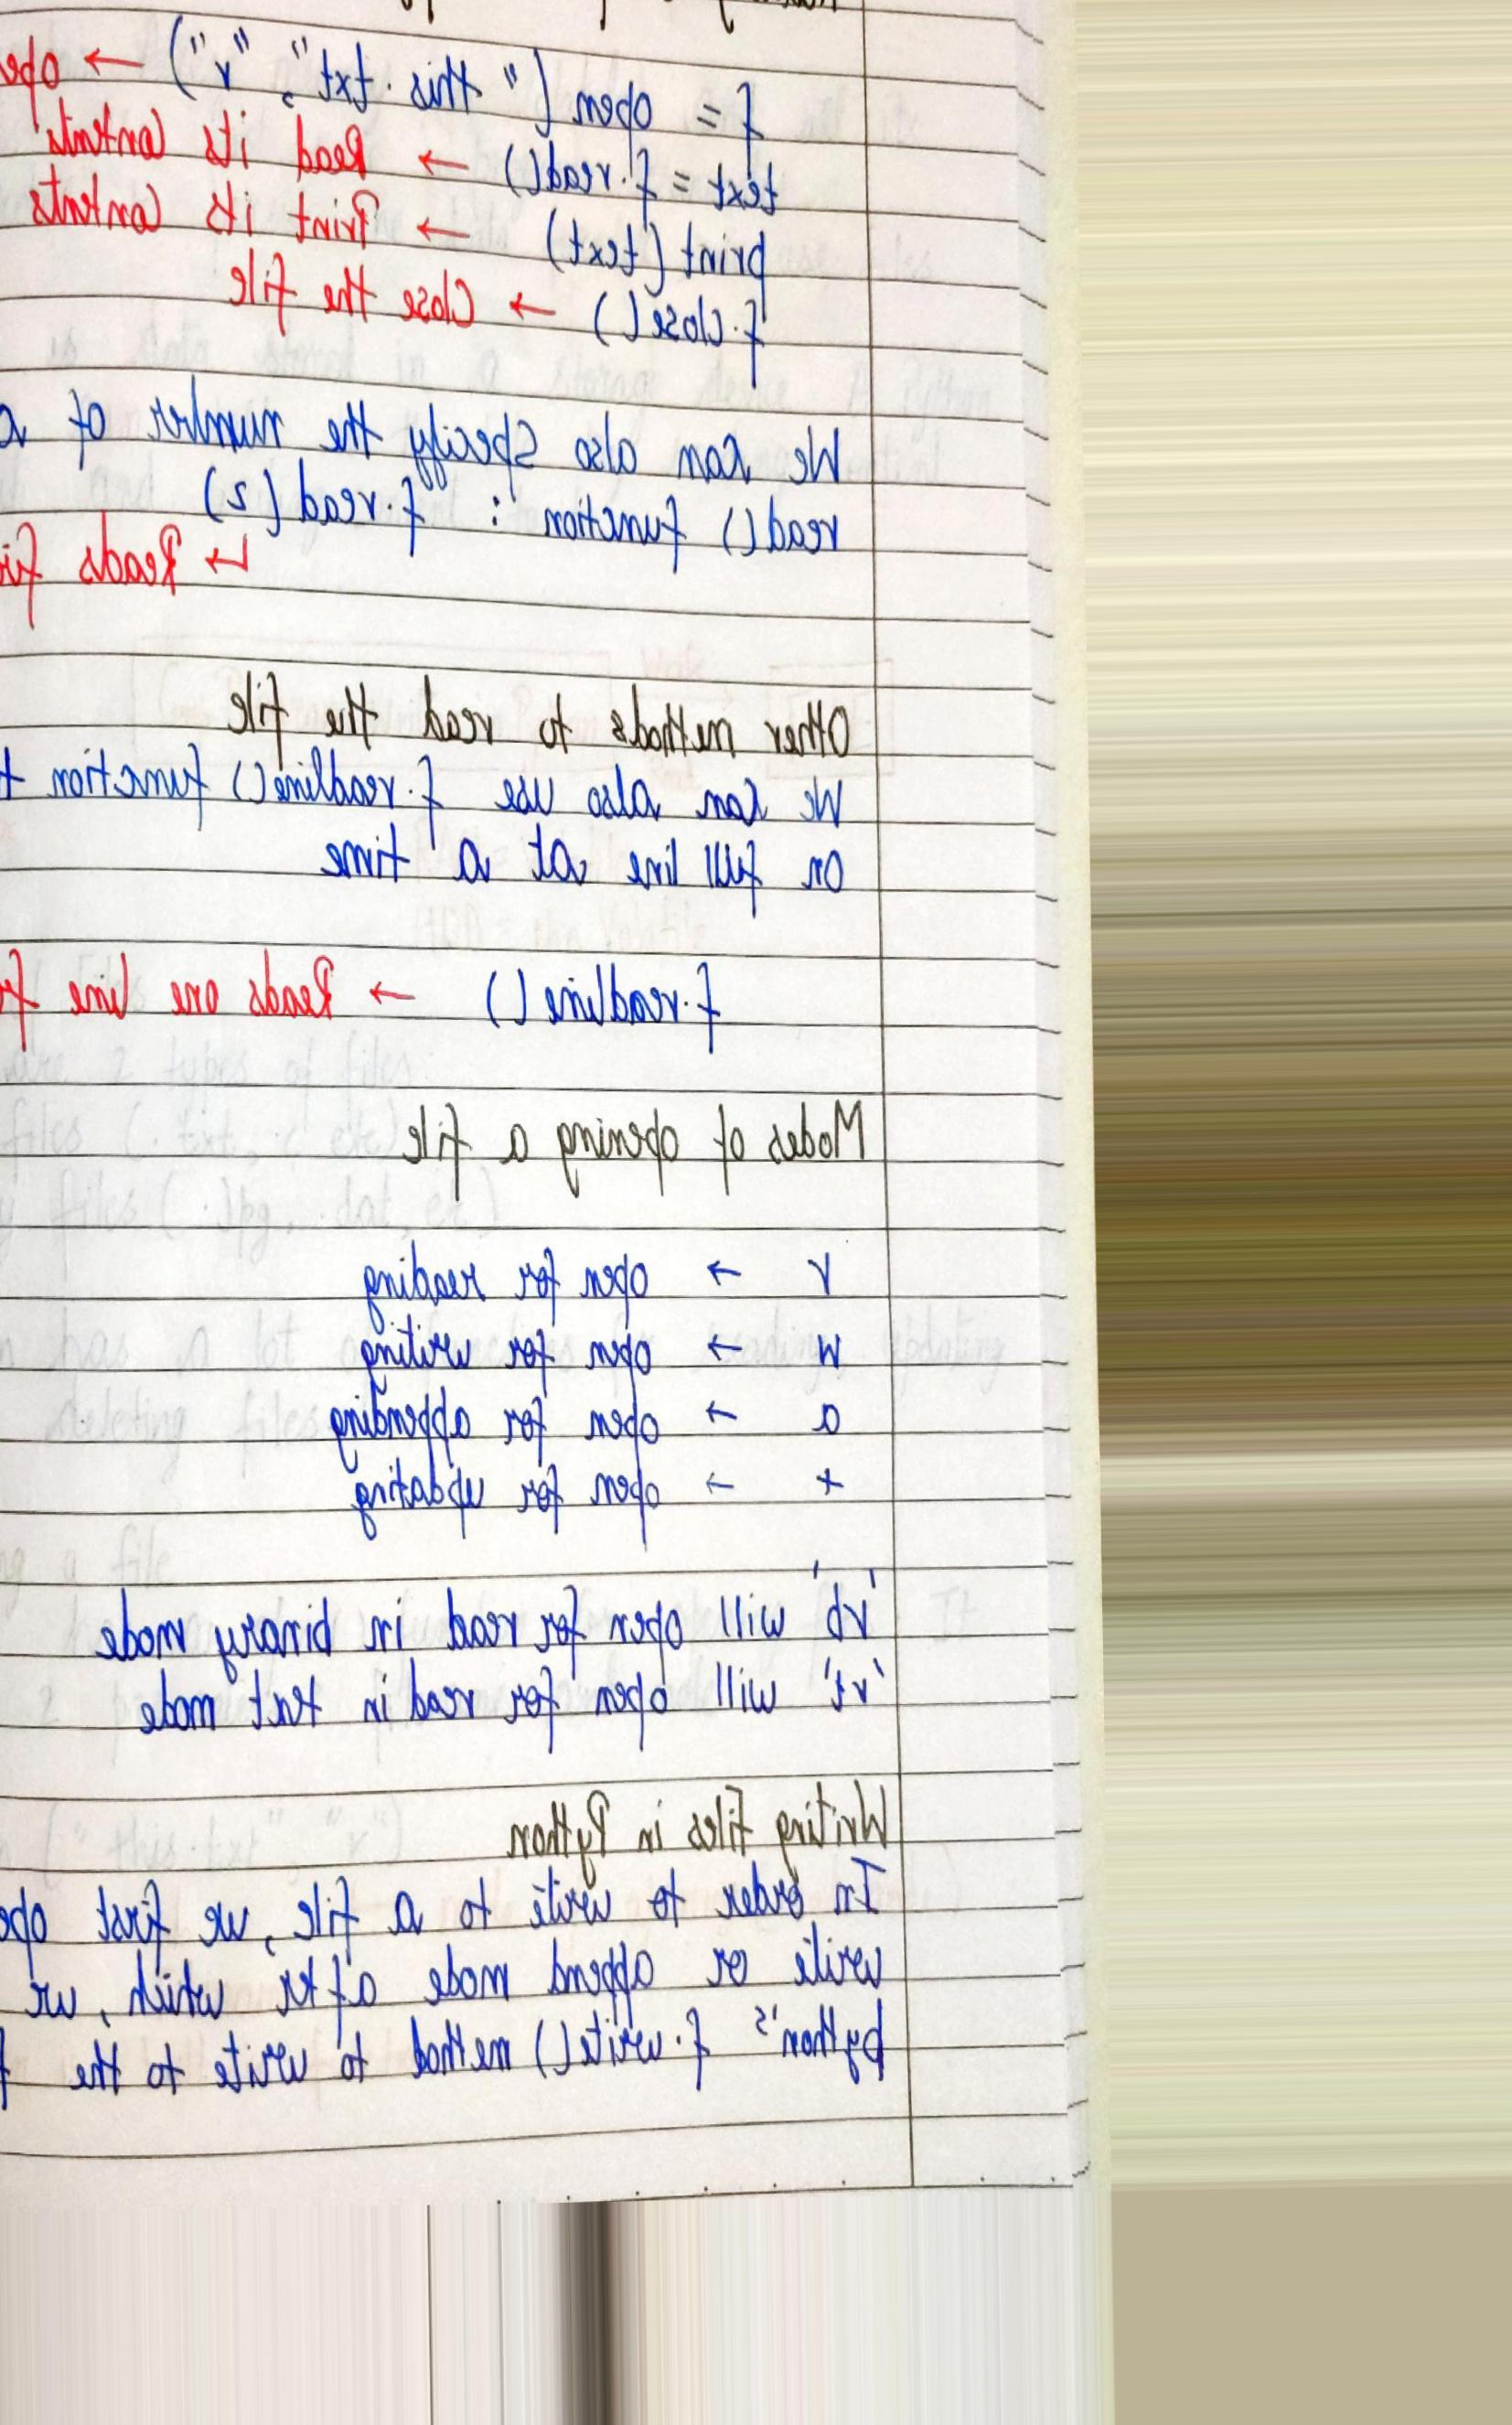 f = open ("this.txt", "r") →
text = f.read() → Read its contents
print (text) → Print its contents
f.close() → Close the file
We can also specify the number of
read() function : f.read(2)
↳ Reads
Other methods to read the file
We can also use f.readline() function
on full line at a time
f.readline() → Reads one line
Modes of opening a file
r → open for reading
w → open for writing
a → open for appending
+ → open for updating
'rb' will open for read in binary mode
'rt' will open for read in text mode
Writing files in Python
In order to write to a file, we first
write or append mode after which, we
python's f.write() method to write to the